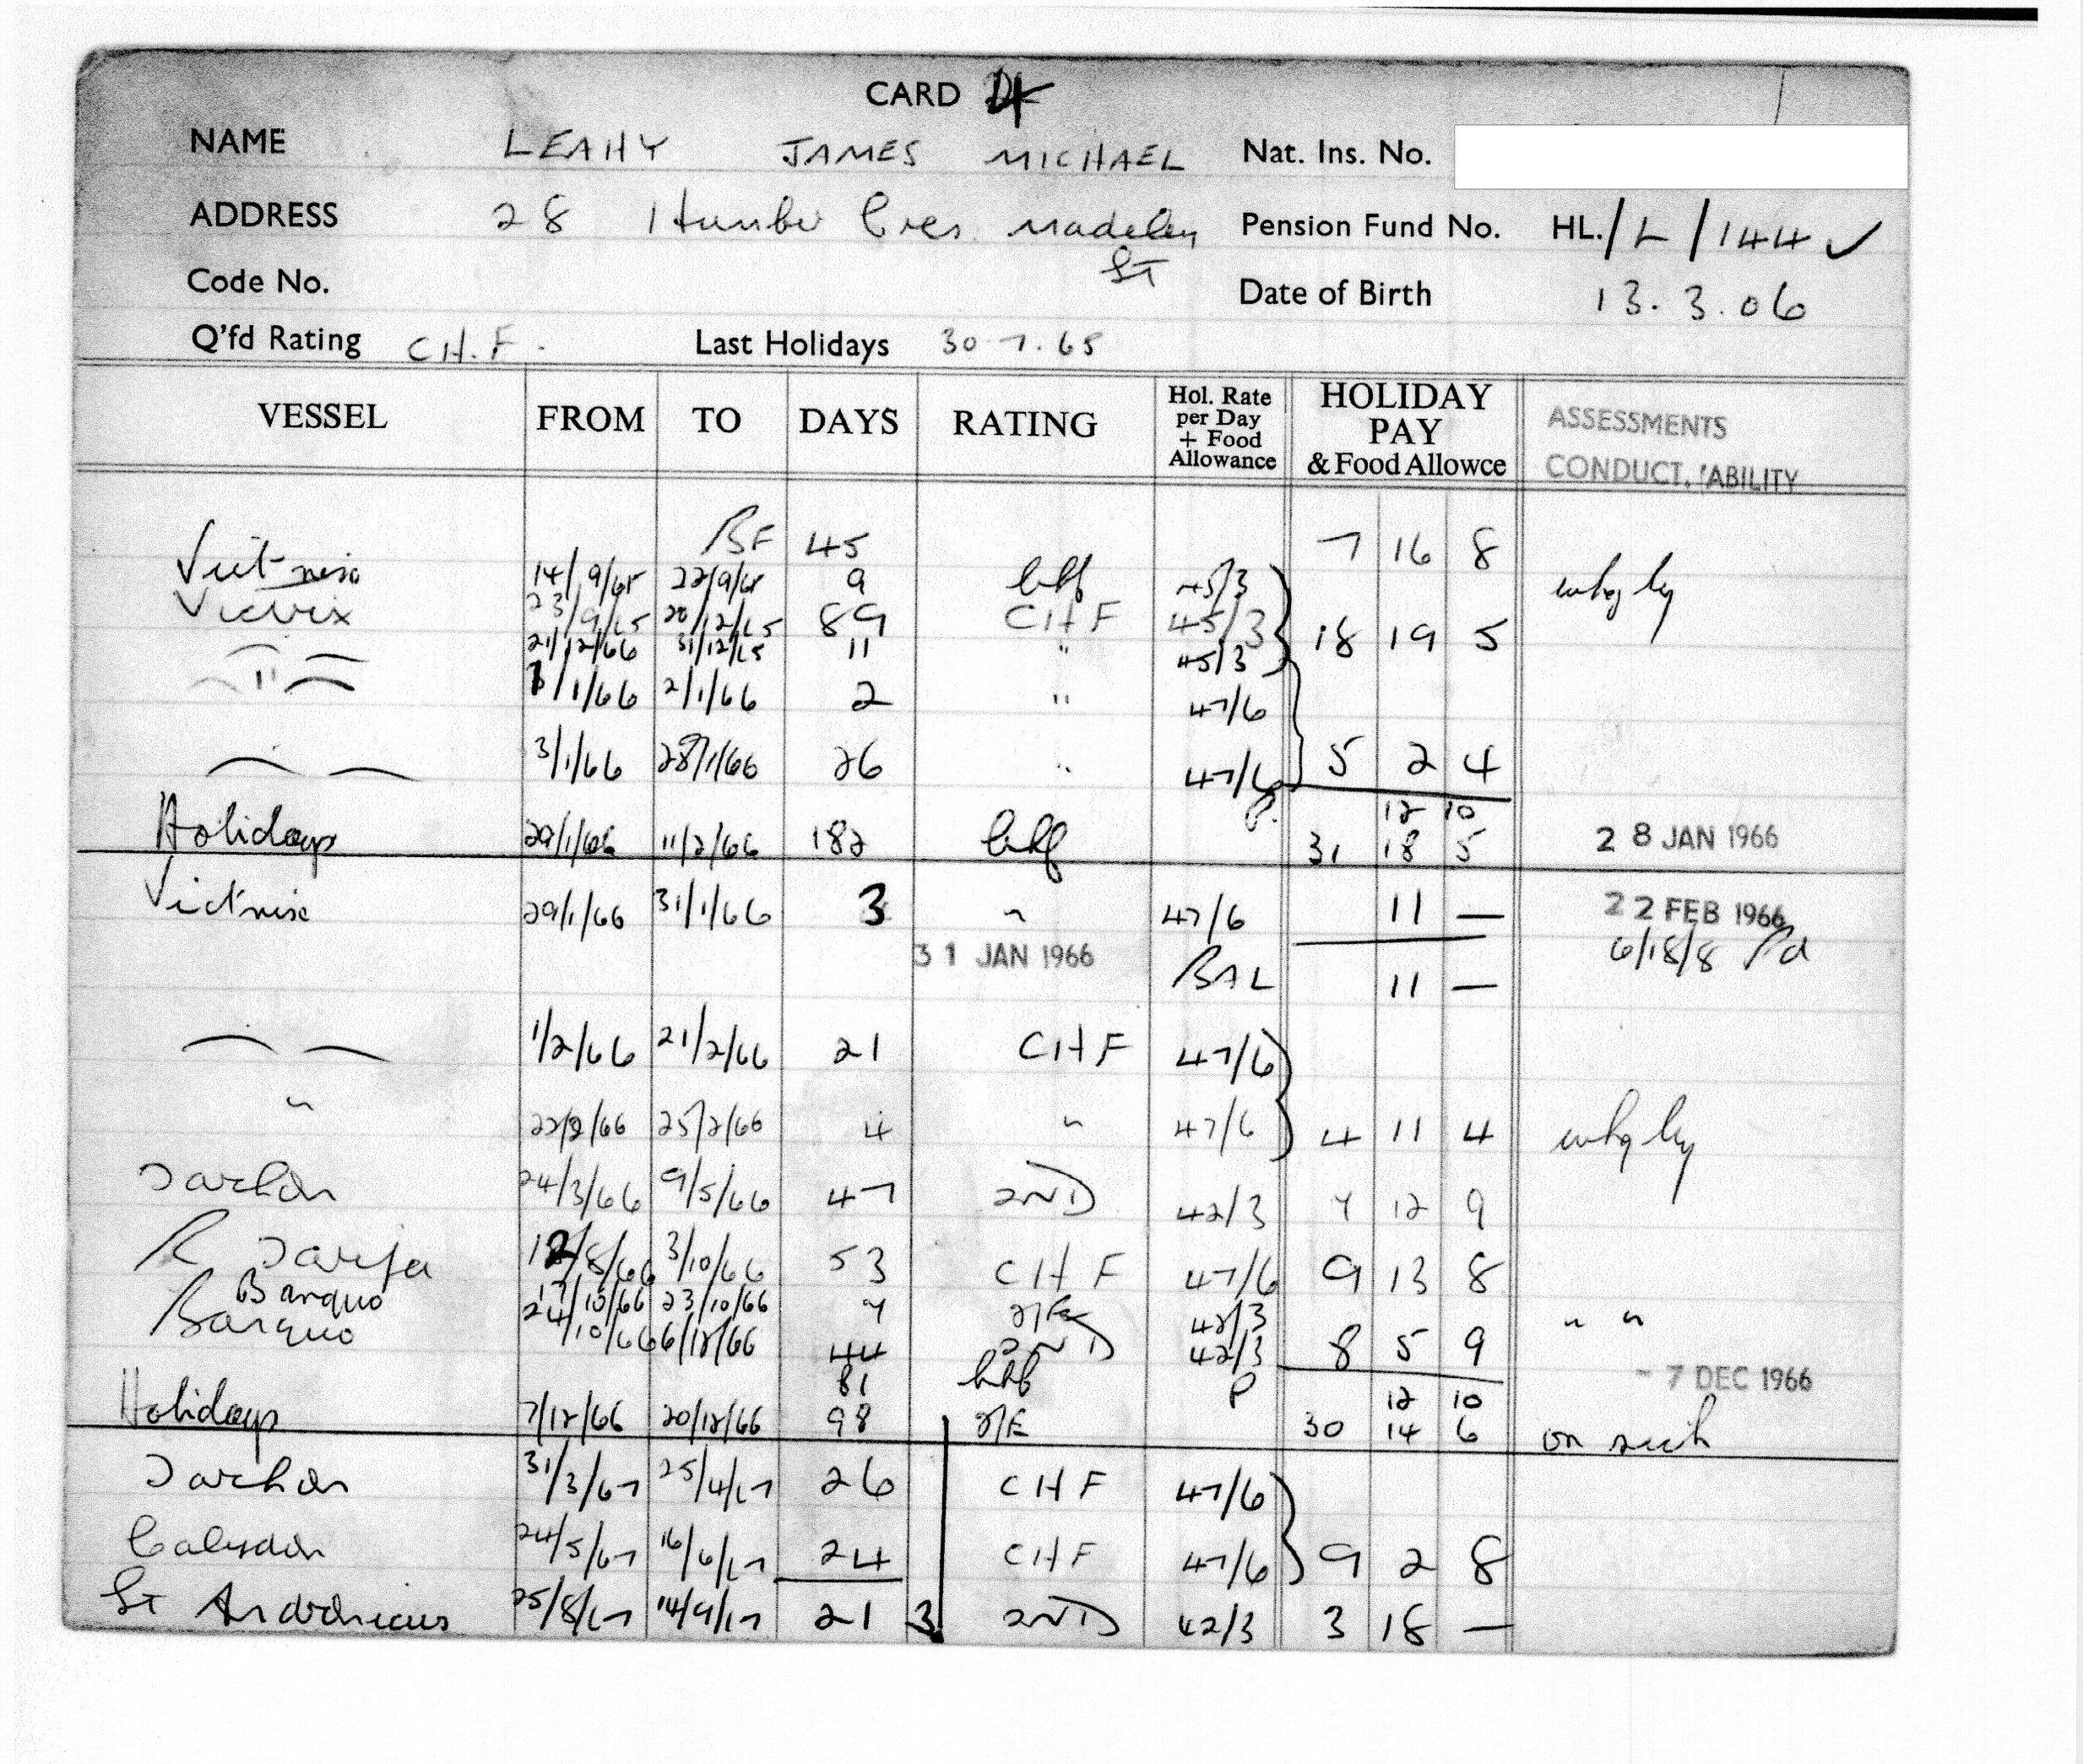 CARD 4
NAME LEAHY JAMES MICHAEL Nat. Ins. No.
ADDRESS 28 Humber Cres. Madeley St Pension Fund No. HL./L/144 ✓
Code No. Date of Birth 13.3.06
Q'fd Rating CH.F. Last Holidays 30.7.65
VESSEL FROM TO DAYS RATING Hol. Rate per Day + Food Allowance HOLIDAY PAY & Food Allowce ASSESSMENTS CONDUCT, ABILITY
BF 45 7 16 8
14/9/65 22/9/65 9 45/3
Victrix 23/9/65 20/12/65 89 CHF 45/3 18 19 5
" 21/12/66 31/12/65 11 " 45/3
" 1/1/66 2/1/66 2 " 47/6
3/1/66 28/1/66 26 " 47/6 5 2 4
12 10
Holidays 29/1/66 11/2/66 182 31 18 5 28 JAN 1966
29/1/66 31/1/66 3 " 47/6 11 — 22 FEB 1966
31 JAN 1966 BAL 11 — 6/18/8 Pd
1/2/66 21/2/66 21 CHF 47/6
" 22/2/66 25/2/66 4 " 47/6 4 11 4
Tarchon 24/3/66 9/5/66 47 2ND 42/3 7 12 9
R Tarifa 12/8/66 3/10/66 53 CHF 47/6 9 13 8
Banquo 17/10/66 23/10/66 7 42/3 " "
Banquo 24/10/66 6/12/66 44 2ND 42/3 8 5 9
81 P 12 10 - 7 DEC 1966
Holidays 7/12/66 20/12/66 98 30 14 6 on sick
Tarchon 31/3/67 25/4/67 26 CHF 47/6
Calydon 24/5/67 16/6/67 24 CHF 47/6 9 2 8
St Andronicus 25/8/67 14/9/67 21 3 2ND 42/3 3 18 —